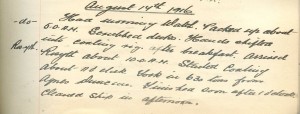 August 14th 1916.
-do- Hard morning Watch. Packed up about
5.0 A.M. Scrubbed decks. Hands shifted
into coaling rig after breakfast. Arrived
Rosyth Rosyth about 10.0 A.M. Started coaling
about 11 o'clock. Took in 630 tons from
Agnes Duncan. Finished soon after 1 o'clock.
Cleaned ship in afternoon.